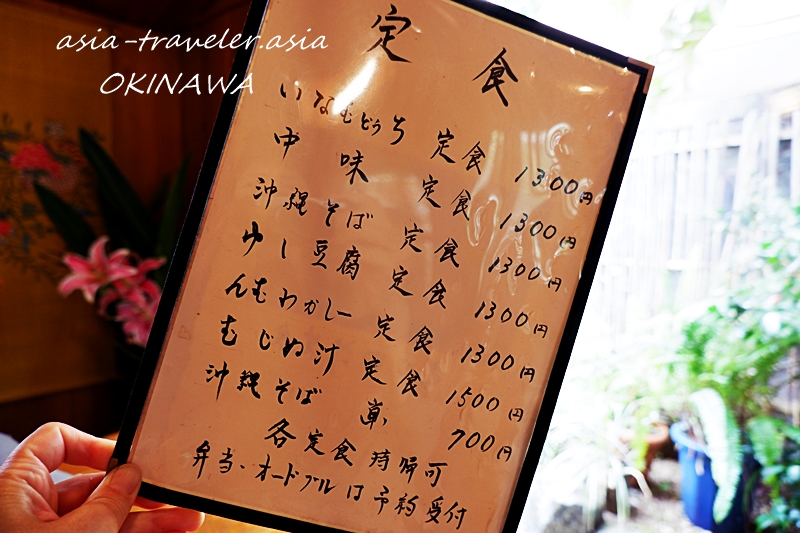 asia-traveler.asia
OKINAWA
定食
いなむどぅち 定食 1300円
中味 定食 1300円
沖縄そば 定食 1300円
ゆし豆腐 定食 1300円
んむわかしー 定食 1300円
むじぬ汁 定食 1500円
沖縄そば 単 700円
各定食 持帰可
弁当・オードブルは予約受付